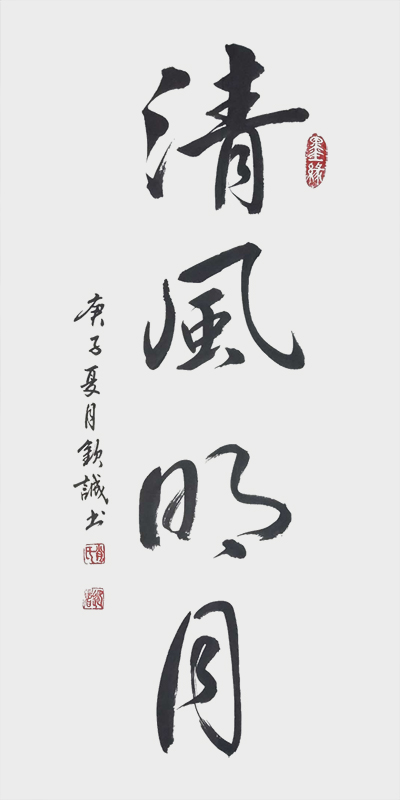 清風明月
墨缘
庚子夏月欽誠书